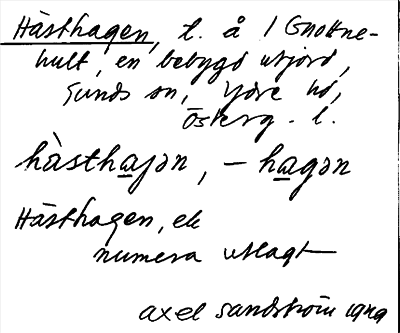 Hästhagen, t. å 1 Gnottne-
hult, en bebygd utjord,
Sunds sn, Ydre hd,
Österg. l.
hàsthaɡən, – hagən
Hästhagen, ek
numera utlagt
Axel Sandström 1929